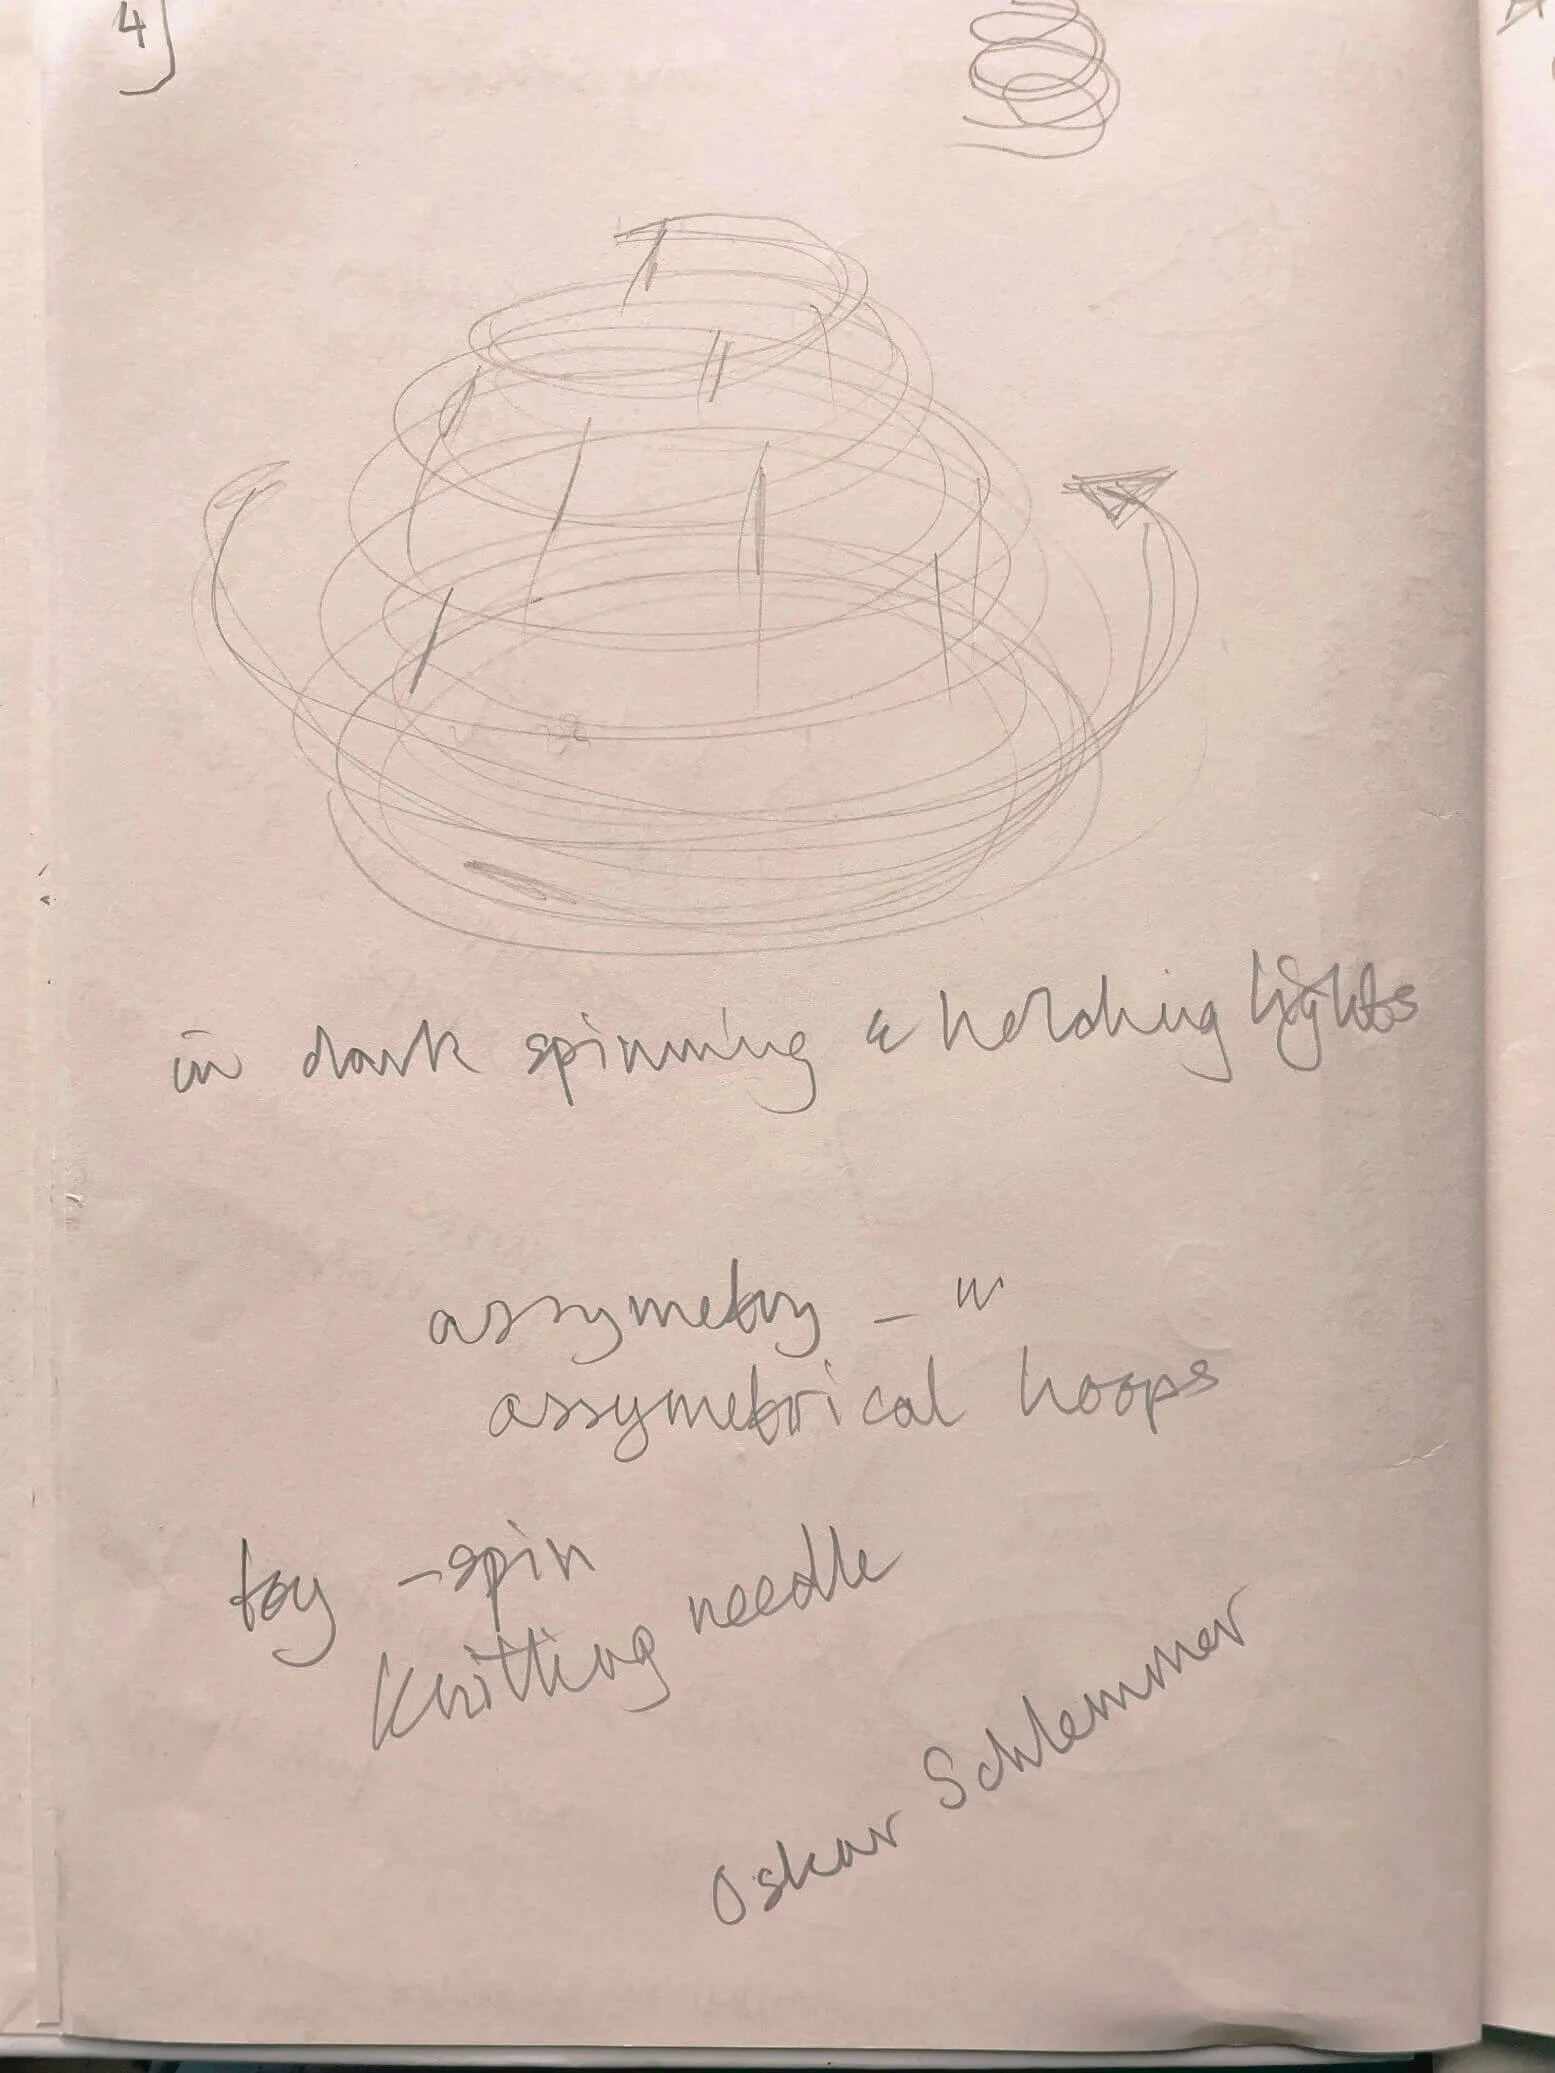 4)
in dark spinning & holding lights
assymetry - in
assymetrical hoops
toy - spin
knitting needle
Oskar Schlemmer